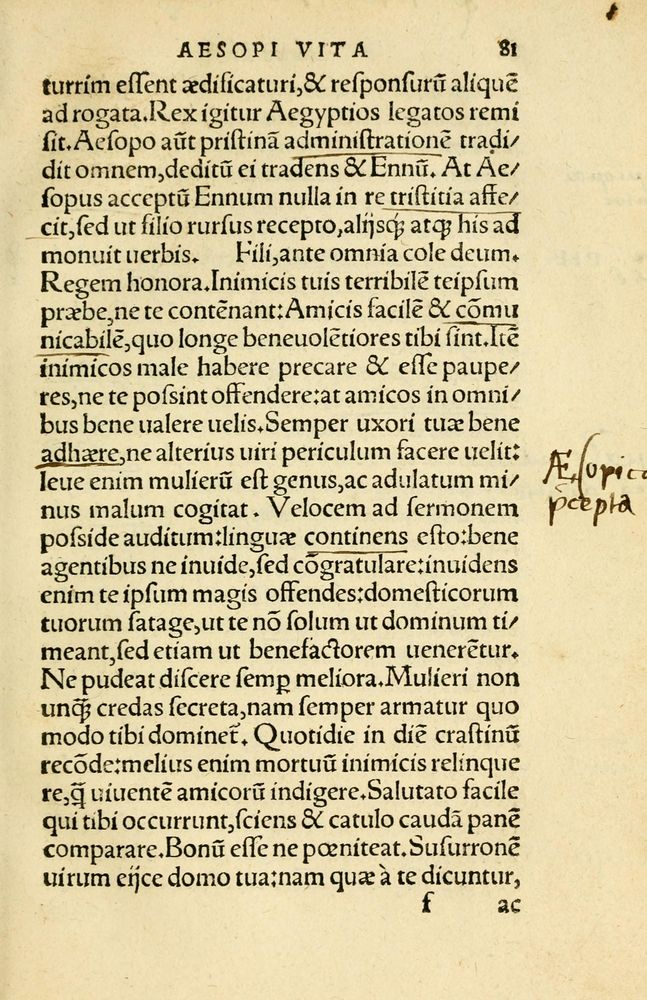 AESOPI VITA 81
turrim eſſent ædificaturi,& reſponſurũ aliquẽ
ad rogata.Rex igitur Aegyptios legatos remi
ſit.Aeſopo aũt priſtinã adminiſtrationẽ tradi/
dit omnem,deditũ ei tradens & Ennũ. At Ae/
ſopus acceptũ Ennum nulla in re triſtitia affe/
cit,ſed ut filio rurſus recepto,alijsq; atq; his ad
monuit uerbis. Fili,ante omnia cole deum.
Regem honora.Inimicis tuis terribilẽ teipſum
præbe,ne te contẽnant:Amicis facilẽ & cõmu
nicabilẽ,quo longe beneuolẽtiores tibi ſint.Itẽ
inimicos male habere precare & eſſe paupe/
res,ne te poſſint offendere:at amicos in omni/
bus bene ualere uelis.Semper uxori tuæ bene
adhære,ne alterius uiri periculum facere uelit:
leue enim mulierũ eſt genus,ac adulatum mi/
nus malum cogitat. Velocem ad ſermonem
poſſide auditum:linguæ continens eſto:bene
agentibus ne inuide,ſed cõgratulare:inuidens
enim te ipſum magis offendes:domeſticorum
tuorum ſatage,ut te nõ ſolum ut dominum ti/
meant,ſed etiam ut benefactorem uenerẽtur.
Ne pudeat diſcere ſemꝑ meliora.Mulieri non
unq̃ credas ſecreta,nam ſemper armatur quo
modo tibi dominet̃. Quotidie in diẽ craſtinũ
recõde:melius enim mortuũ inimicis relinque
re,q̃ uiuentẽ amicorũ indigere.Salutato facile
qui tibi occurrunt,ſciens & catulo caudã panẽ
comparare.Bonũ eſſe ne pœniteat.Suſurronẽ
uirum eijce domo tua:nam quæ à te dicuntur,
f ac
Æſopica
p̃cepta